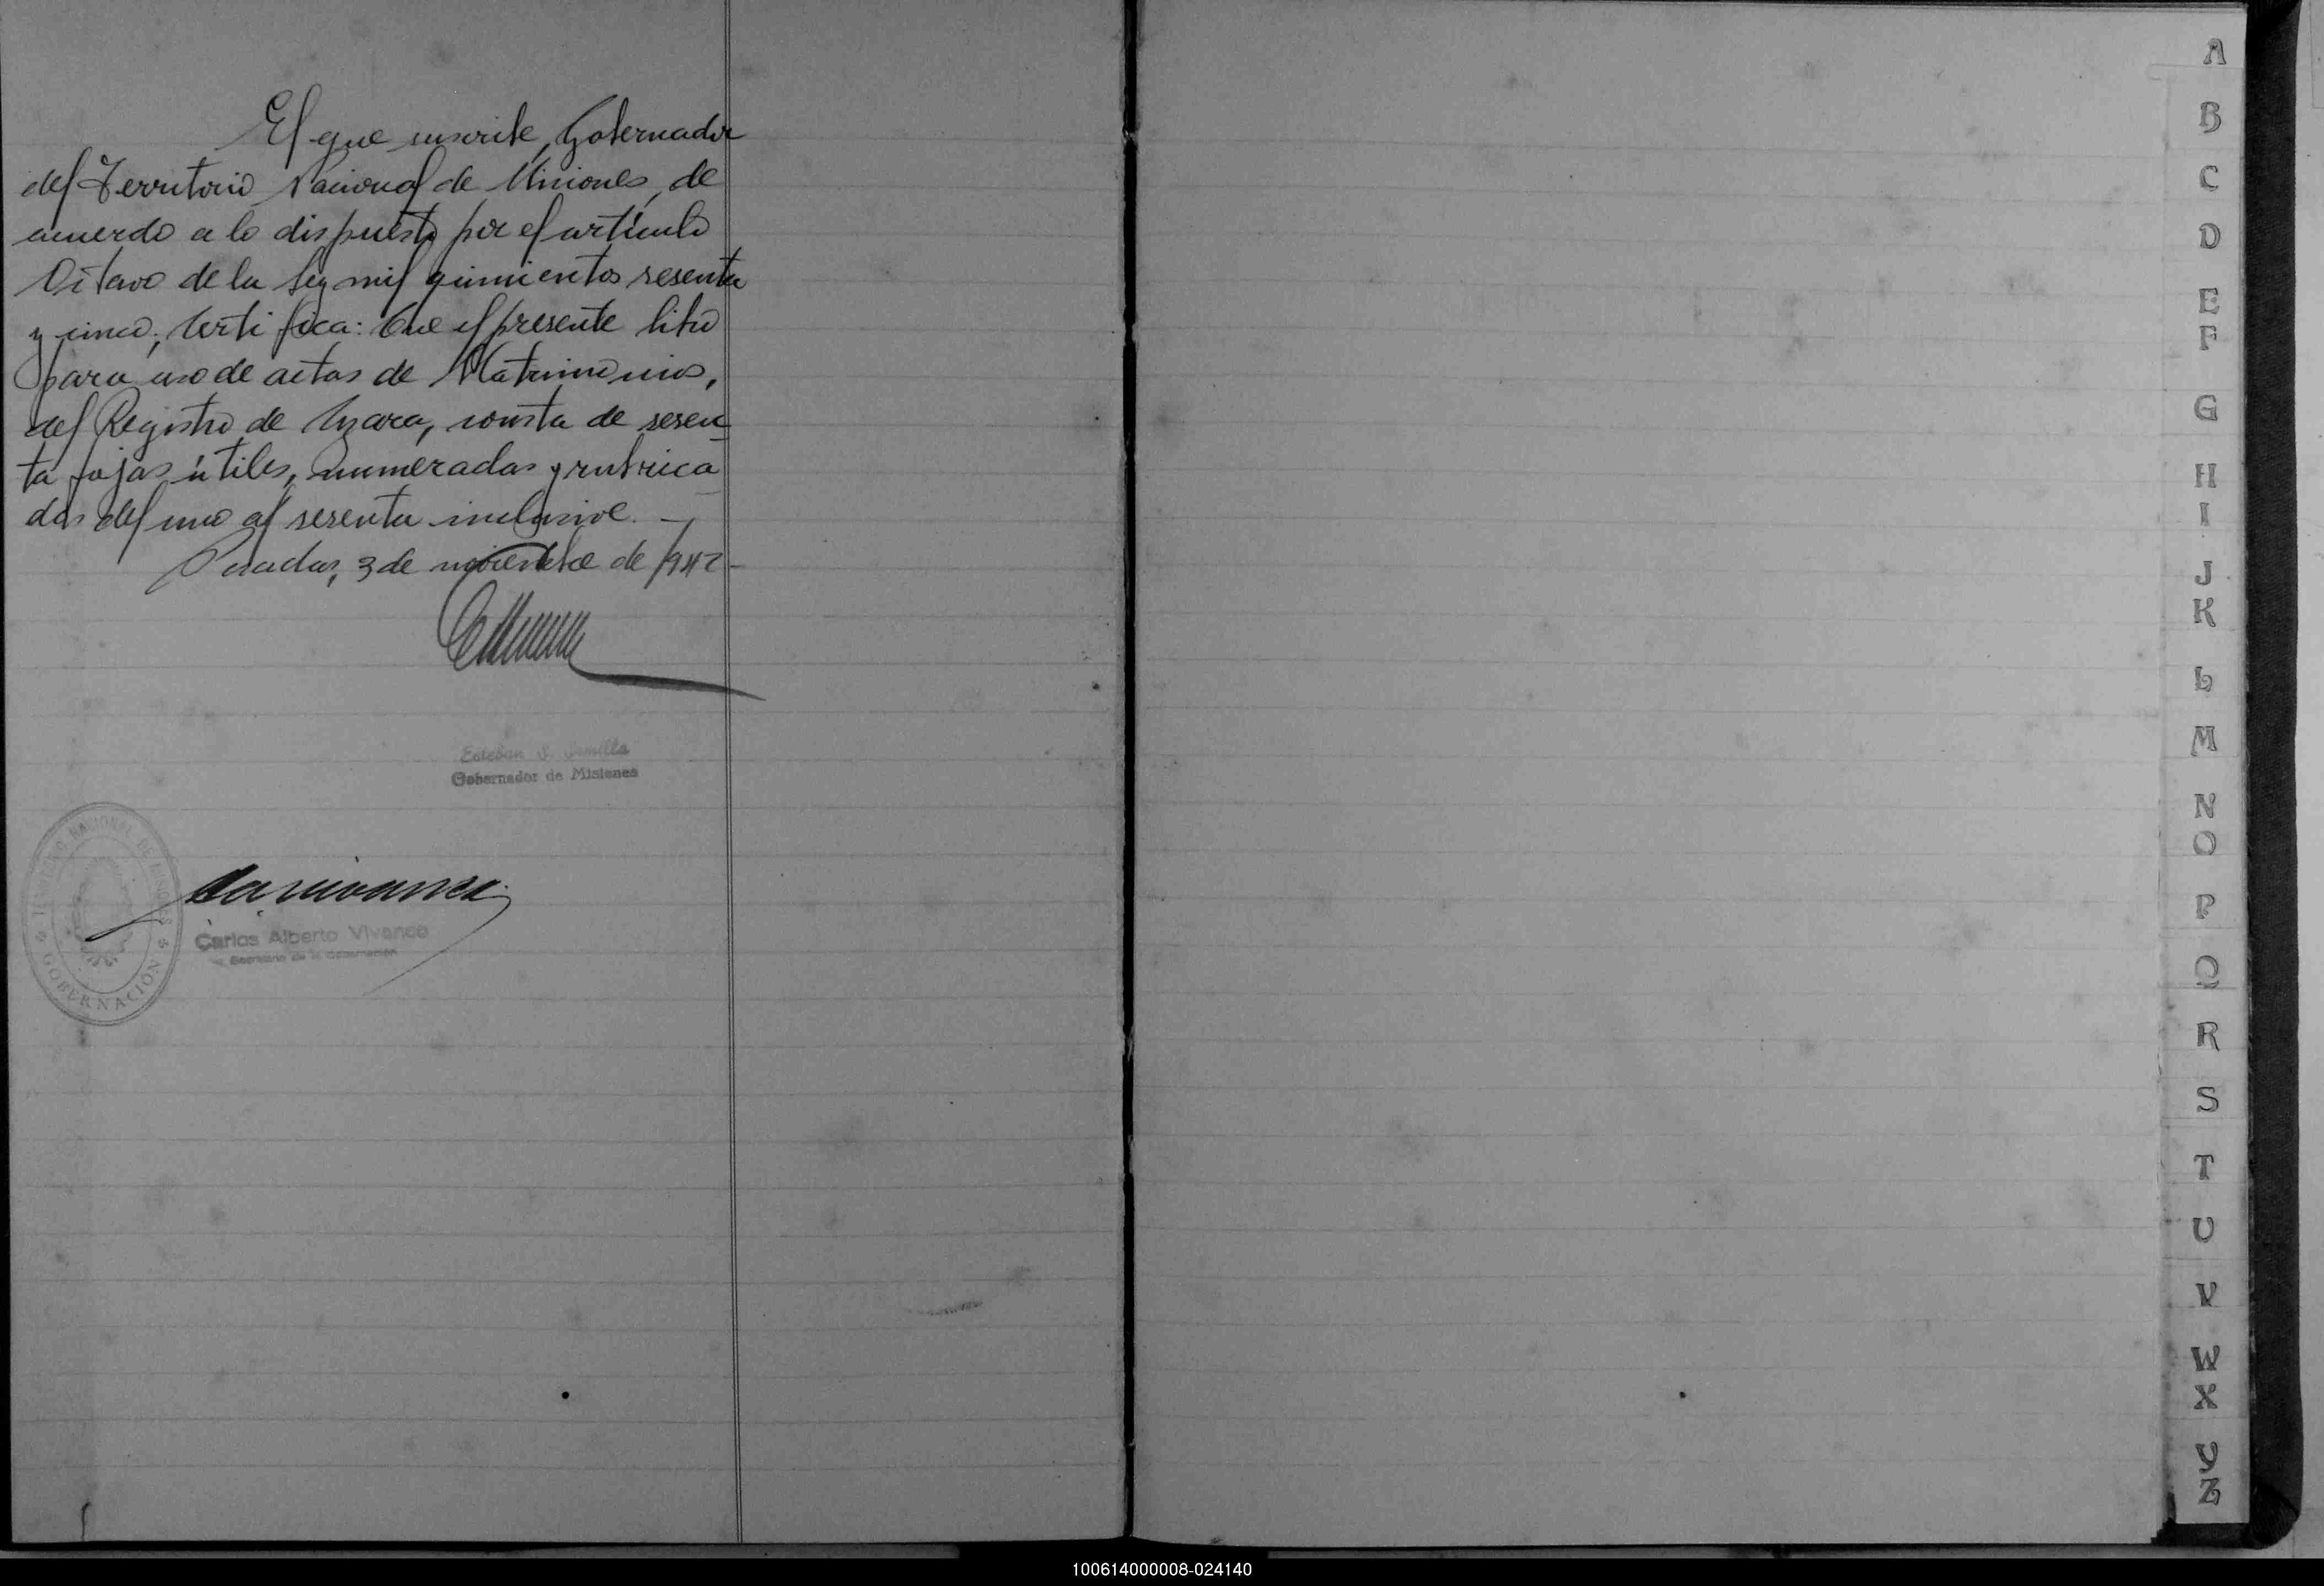 El que suscribe, Gobernador
del Territorio Nacional de Misiones, de
acuerdo a lo dispuesto por el artículo
Octavo de la ley mil quinientos sesenta
y cinco; Certifica: Que el presente libro
para uso de actas de Matrimonios,
del Registro de Azara, consta de sesen
ta fojas útiles, numeradas y rubrica
das del uno al sesenta inclusive. —
Posadas, 3 de noviembre de 1942
Esteban
Gobernador de Misiones
TERRITORIO NACIONAL DE MISIONES
GOBERNACIÓN
Carlos Alberto Vivanco
Secretario de la Gobernación
A
B
C
D
E
F
G
H
I
J
K
L
M
N
O
P
Q
R
S
T
U
V
W
X
Y
Z
100614000008-024140